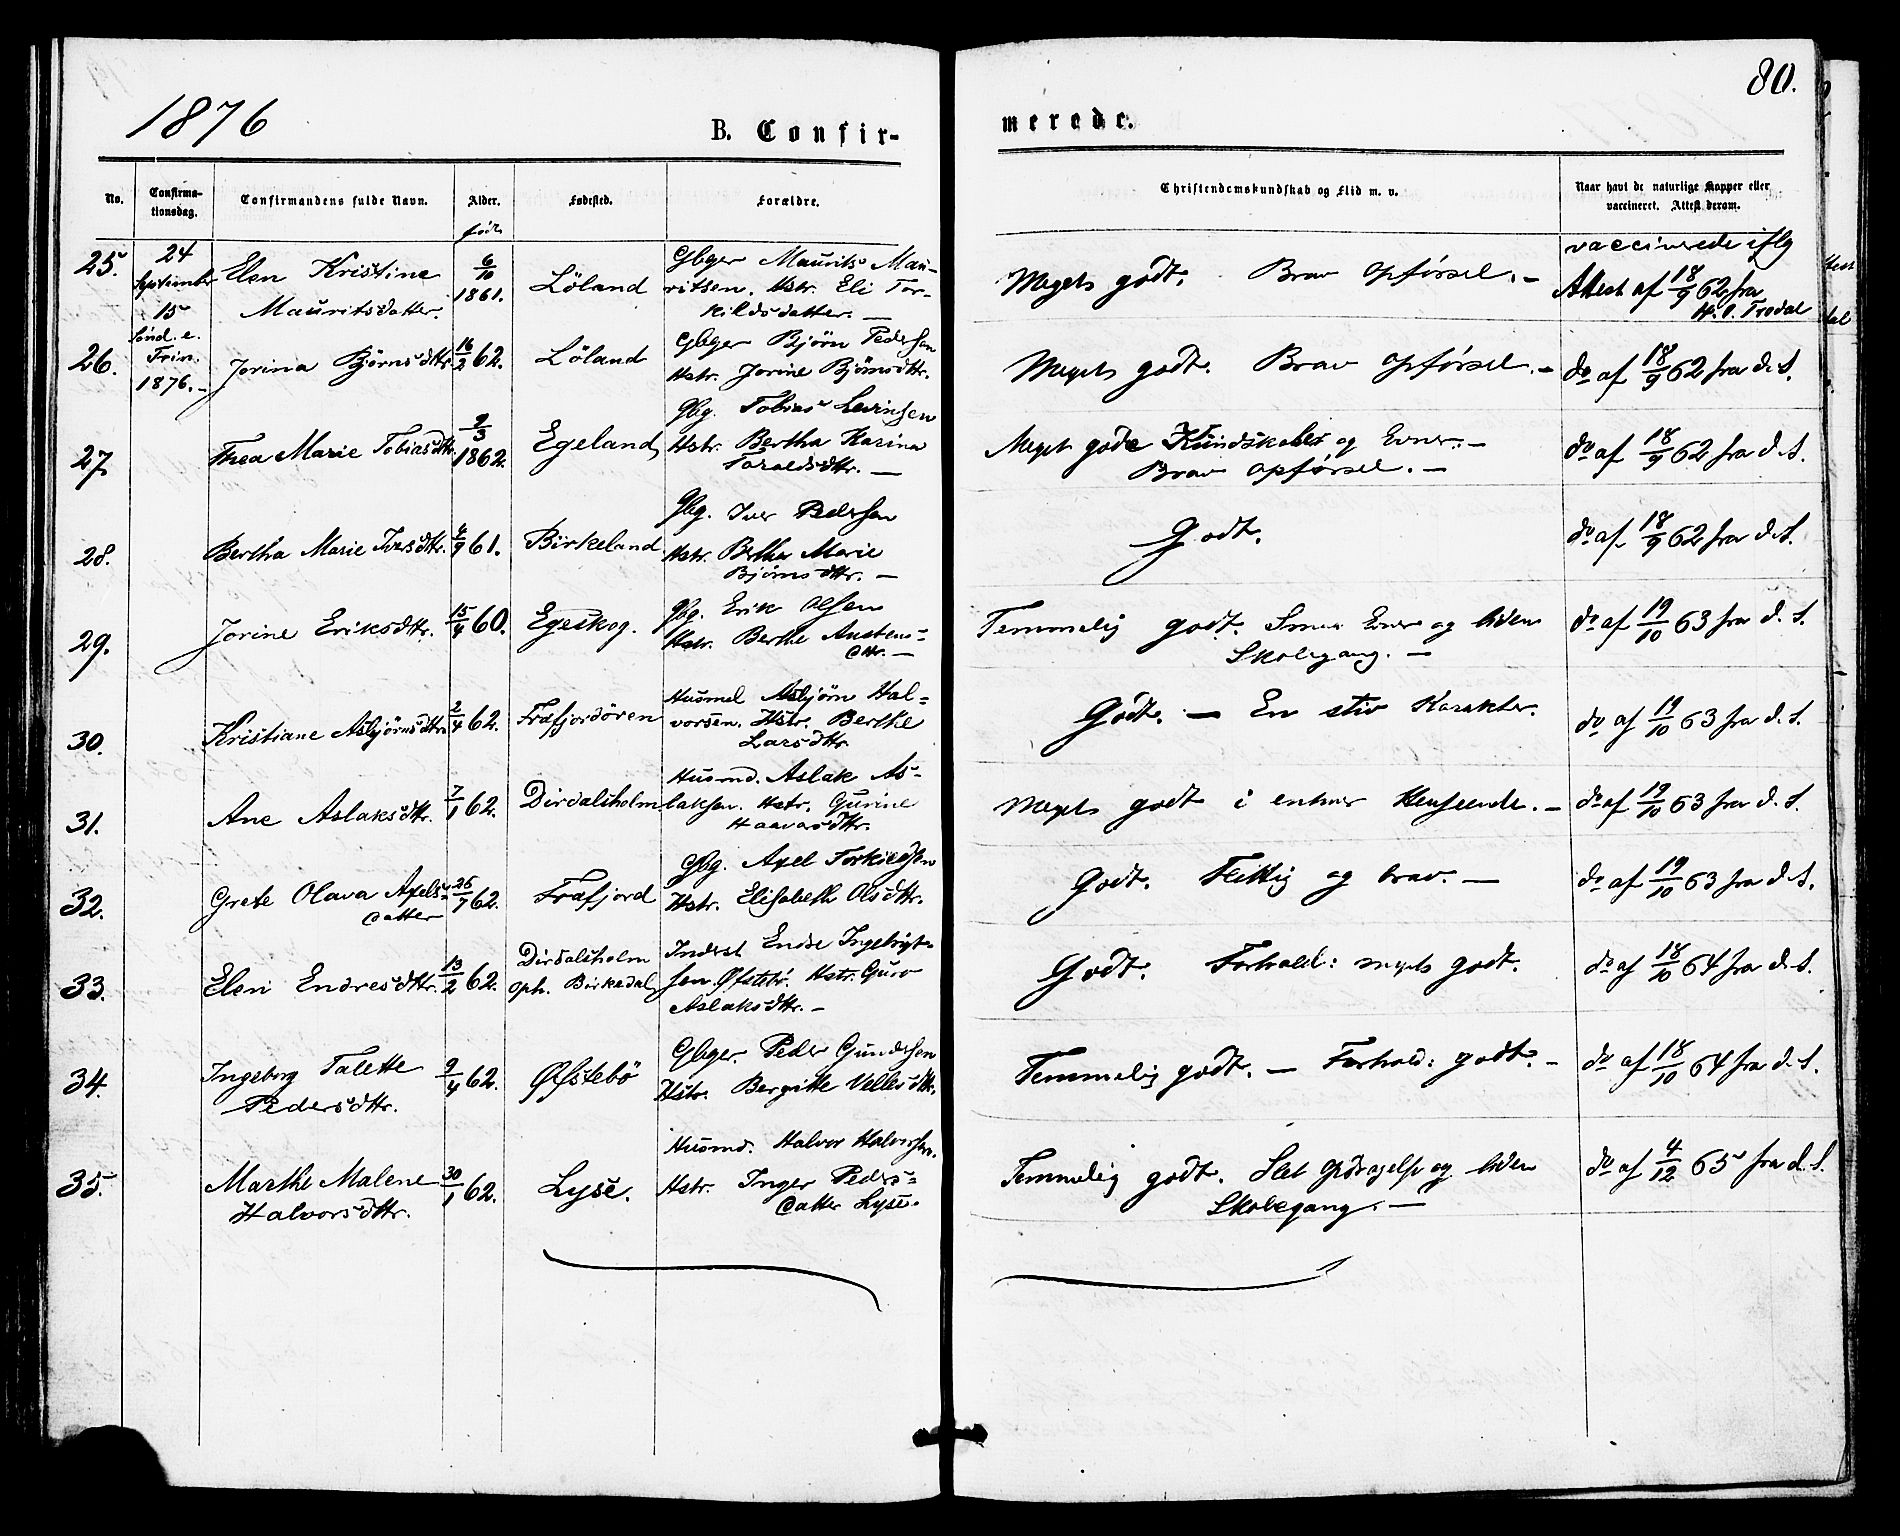 1876
B. Confir-
merede.
80.
No.
Confirma-
tionsdag.
Confirmandens fulde Navn.
Alder.
Fødested.
Forældre.
Christendomskundskab og Flid m. v.
Naar havt de naturlige Kopper eller
vaccineret. Attest derom.
født
24
September
15
Sønd. e.
Trin.
1876.-
25.
Elen Kristine
Mauritsdatter.
6/10
1861.
Löland
Gbger Maurits Mau-
ritsen. Hstr. Eli Tor-
kildsdatter. —
Meget godt. Brav Opførsel.-
vaccinerede iflg
Attest af 18/9 62 fra
H. O. Frodal
26.
Jorina Björnsdttr.
16/2 62.
Löland
Gbger Bjørn Pedersen
Hstr. Jorine Björnsdttr.
Meget godt. Brav Opførsel.-
do af 18/9 62 fra d. S.
27.
Thea Marie Tobiasdttr.
9/3
1862.
Egeland
Gbg. Tobias Levinsen
Hstr. Bertha Karina
Toraldsdttr. —
Meget gode Kundskaber og Evner.-
Brav Opførsel.-
do af 18/9 62 fra d. S.
28.
Bertha Marie Iversdttr.
4/9 61.
Birkeland
Gbg. Iver Pedersen
Hstr. Berthe Marie
Bjørnsdttr. —
Godt.
do af 18/9 62 fra d. S.
29.
Jorine Eriksdttr.
15/4 60.
Egeskog.
Gbg. Erik Olsen
Hstr. Berthe Austens-
dttr. —
Temmelig godt. Smaa Evner og liden
Skolegang. —
do af 19/10 63 fra d. S.
30.
Kristiane Asbjörnsdttr.
2/4 62.
Frafjordören
Husmd Asbjørn Hal-
vorsen. Hstr. Berthe
Larsdttr.
Godt. — En stiv Karakter.
do af 19/10 63 fra d. S.
31.
Ane Aslaksdttr.
7/1 62.
Dirdalsholm
Husmd. Aslak As-
laksen. Hstr. Gurine
Haavarsdttr.
Meget godt i enhver Henseende.-
do af 19/10 63 fra d. S.
32.
Grete Olava Axels-
datter
26/7 62.
Frafjord
Gbg. Axel Torkildsen
Hstr. Elisabeth Olsdttr.
Godt. Flittig og brav.-
do af 19/10 63 fra d. S.
33.
Elen Endresdttr.
13/2 62.
Dirdalsholm
oph. Birkedal
Inderst Endre Ingebrigt-
sen Øfstebö. Hstr. Guro
Aslaksdttr. —
Godt. Forhold: meget godt.
do af 18/10 64 fra d. S.
34.
Ingeborg Talette
Pedersdttr.
9/4 62.
Øfstebö
Gbger. Peder Gundersen
Hstr. Bergitte Vellesdttr.
Temmelig godt. — Forhold: godt.-
do af 18/10 64 fra d. S.
35.
Marthe Malene
Halvorsdttr.
30/1 62.
Lyse.
Husmd. Halvor Halvorsen.
Hstr. Inger Peders-
datter Lyse.
Temmelig godt. Slet Opdragelse og liden
Skolegang. —
do af 4/12 65 fra d. S.